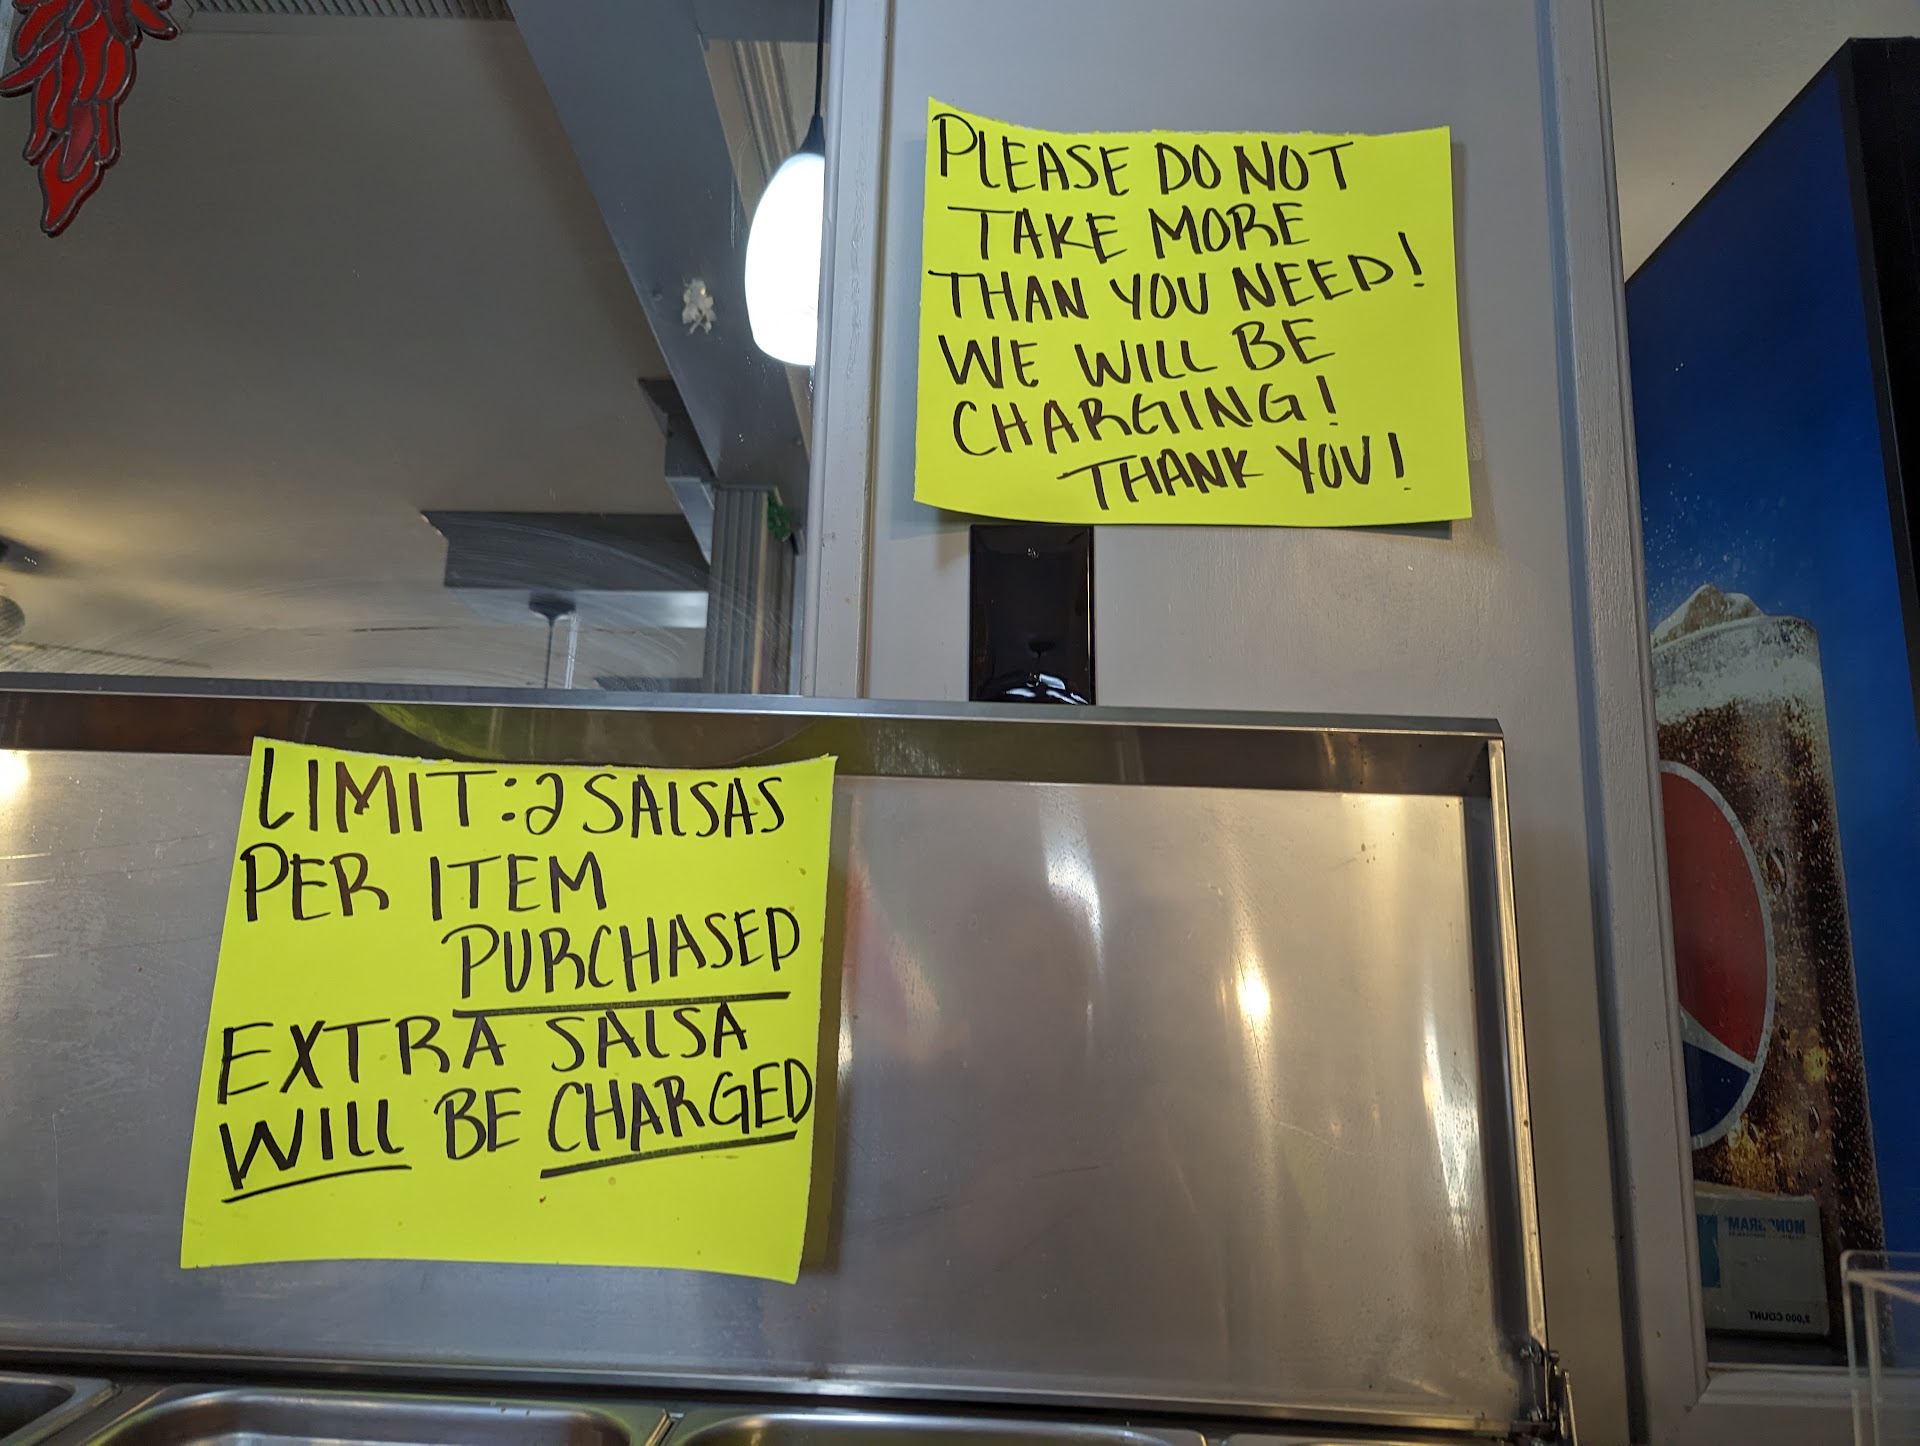 PLEASE DO NOT
TAKE MORE
THAN YOU NEED!
WE WILL BE
CHARGING!
THANK YOU!
LIMIT: 2 SALSAS
PER ITEM
PURCHASED
EXTRA SALSA
WILL BE CHARGED
MONOGRAM
COUNT